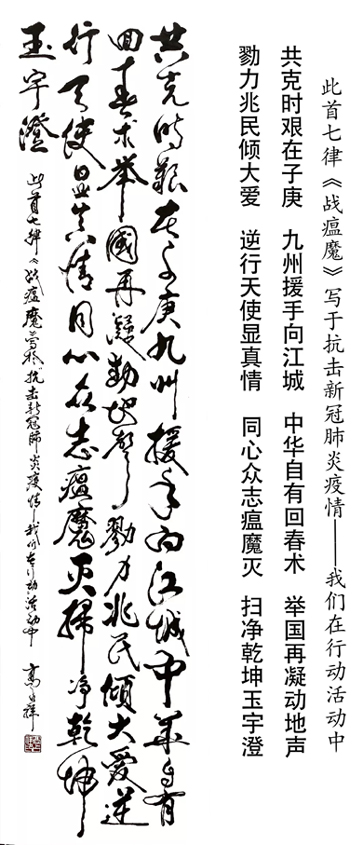 此首七律《战瘟魔》写于抗击新冠肺炎疫情——我们在行动活动中
共克时艰在子庚 九州援手向江城 中华自有回春术 举国再凝动地声
勠力兆民倾大爱 逆行天使显真情 同心众志瘟魔灭 扫净乾坤玉宇澄
共克時艱在子庚九州援手向江城中華自有
回春术举國再凝動地聲勠力兆民傾大愛逆
行天使显真情同心众志瘟魔灭掃净乾坤
玉宇澄
此首七律《战瘟魔》写于抗击新冠肺炎疫情——我们在行动活动中